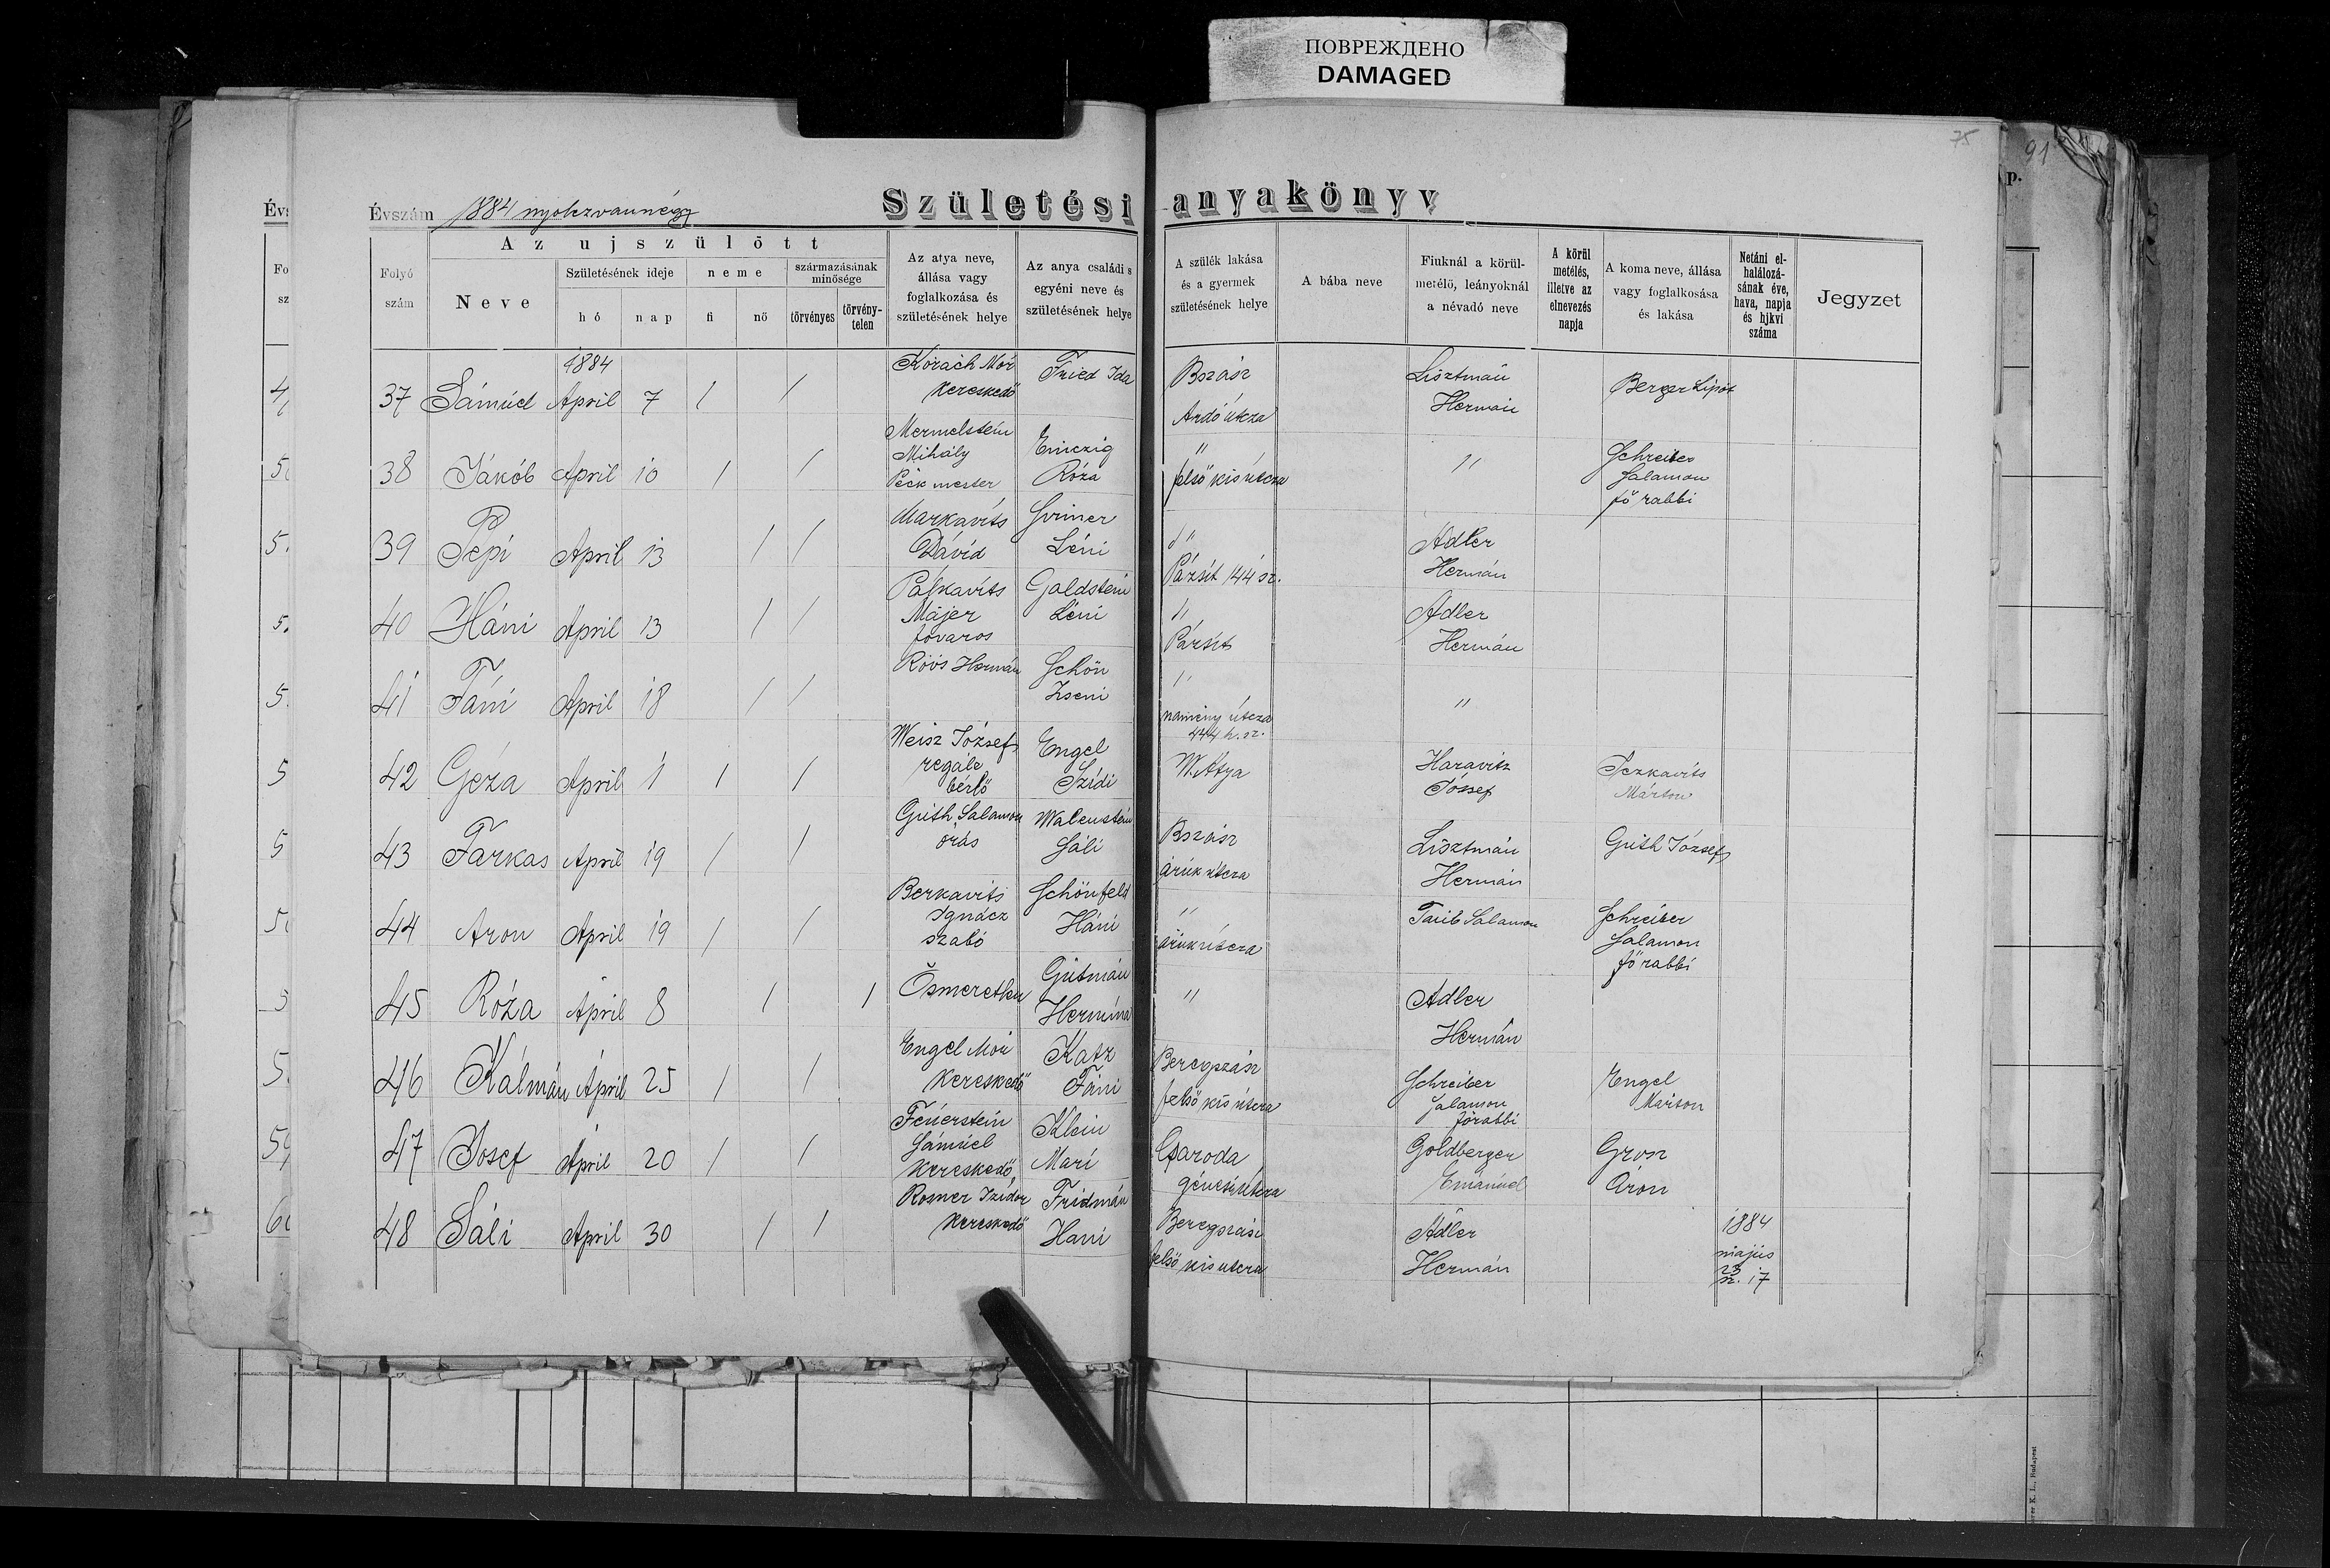 ПОВРЕЖДЕНО
DAMAGED
75
91
p.
Évszám 1884 nyolczvannégy
Születési anyakönyv
Folyó szám
Az ujszülött
Neve
Születésének ideje
hó
nap
neme
fi
nő
származásának minősége
törvényes
törvény-telen
Az atya neve, állása vagy foglalkozása és születésének helye
Az anya családi s egyéni neve és születésének helye
A szülék lakása és a gyermek születésének helye
A bába neve
Fiuknál a körül-metélő, leányoknál a névadó neve
A körül metélés, illetve az elnevezés napja
A koma neve, állása vagy foglalkosása és lakása
Netáni el-halálozá-sának éve, hava, napja és hjkvi száma
Jegyzet
1884
37 Sámuel April 7 / / Korach Mór kereskedő Fried Ida Bszász Ardó útcza Lisztmán Hermán Berger Lipót
38 Jákób April 10 / / Mermelstein Mihály Pék mester Einczig Róza " felső kis útcza " Schreiber Salamon fő rabbi
39 Pepi April 13 / / Markavits Dávid Griner Léni " Pázsit 144 sz. Adler Hermán
40 Háni April 13 / / Palkavits Májer fovaros Goldstein Léni " Pázsit Adler Hermán
41 Fáni April 18 / / Róós Hermán Schön Zseni " namény útcza 444 h. sz. "
42 Geza April 1 / / Weisz József regále bérlő Engel Szídi W. Atya Haravitz József Iczkavits Márton
43 Farkas April 19 / / Grüth Salamon órás Walenstein Sáli Bszász árúk útcza Lisztmán Hermán Grüth József
44 Aron April 19 / / Berkavits Ignácz szabó Schönfeld Háni " árúk útcza Taub Salamon Schreiber Salamon főrabbi
45 Róza April 8 / / Ösmeretlen Gutmán Hermina " Adler Hermán
46 Kálmán April 25 / / Engel Mór kereskedő Katz Fáni Beregszász felső kis útcza Schreiber Salamon főrabbi Engel Marton
47 Josef April 20 / / Feuerstein Sámuel kereskedő Klein Mari Csaroda génesi útcza Goldberger Emánuel Grosz Áron
48 Sáli April 30 / / Romer Izidor kereskedő Fridmán Hani Beregszász felső kis utcza Adler Hermán 1884 május 23 sz. 17